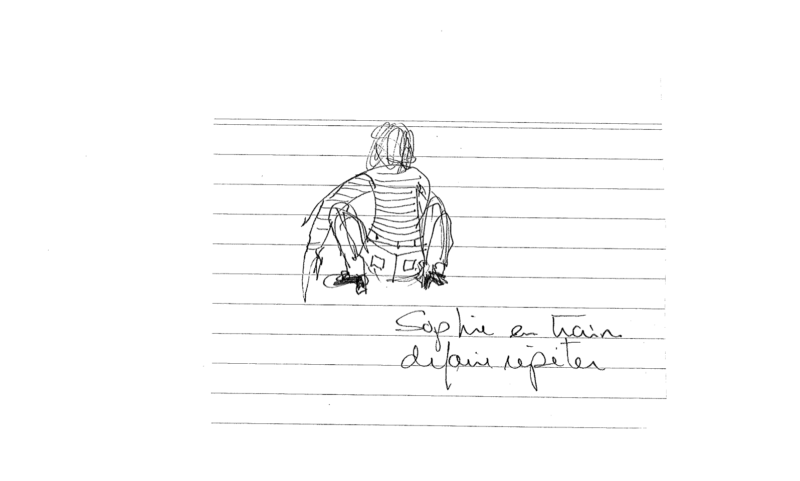 Sophie en train
de faire répéter